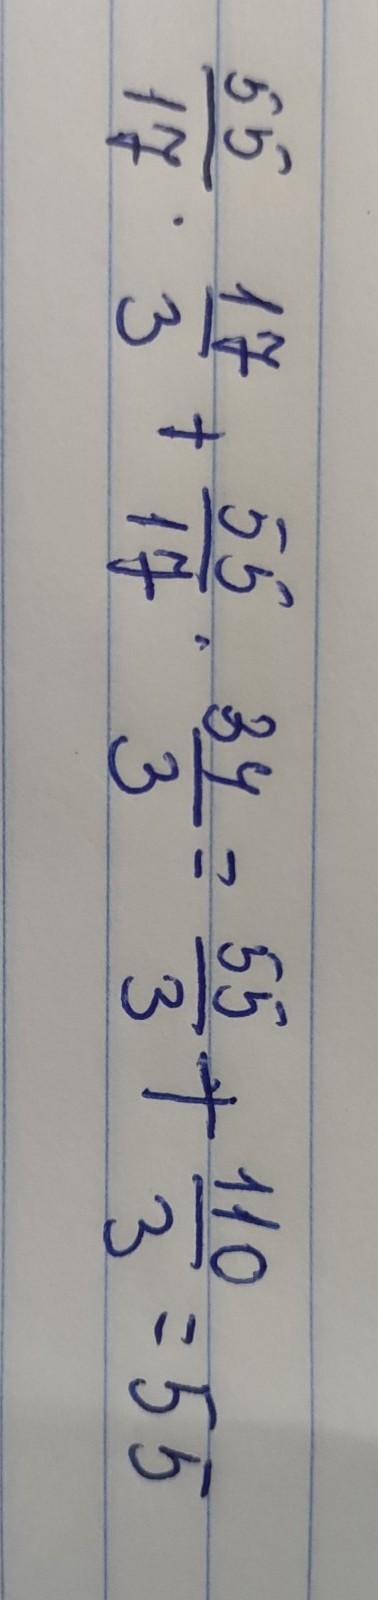 55/17 · 17/3 + 55/17 · 34/3 = 55/3 + 110/3 = 55